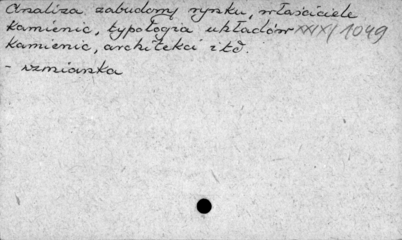 Analiza zabudowy rynku, właściciele
kamienic, typologia układów XXXI/1049
kamienic, architekci itd.
- wzmianka